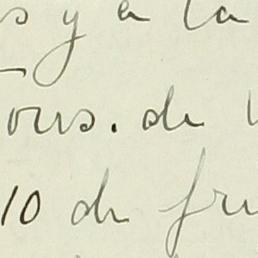 s y a la
ours. de
10 de fru